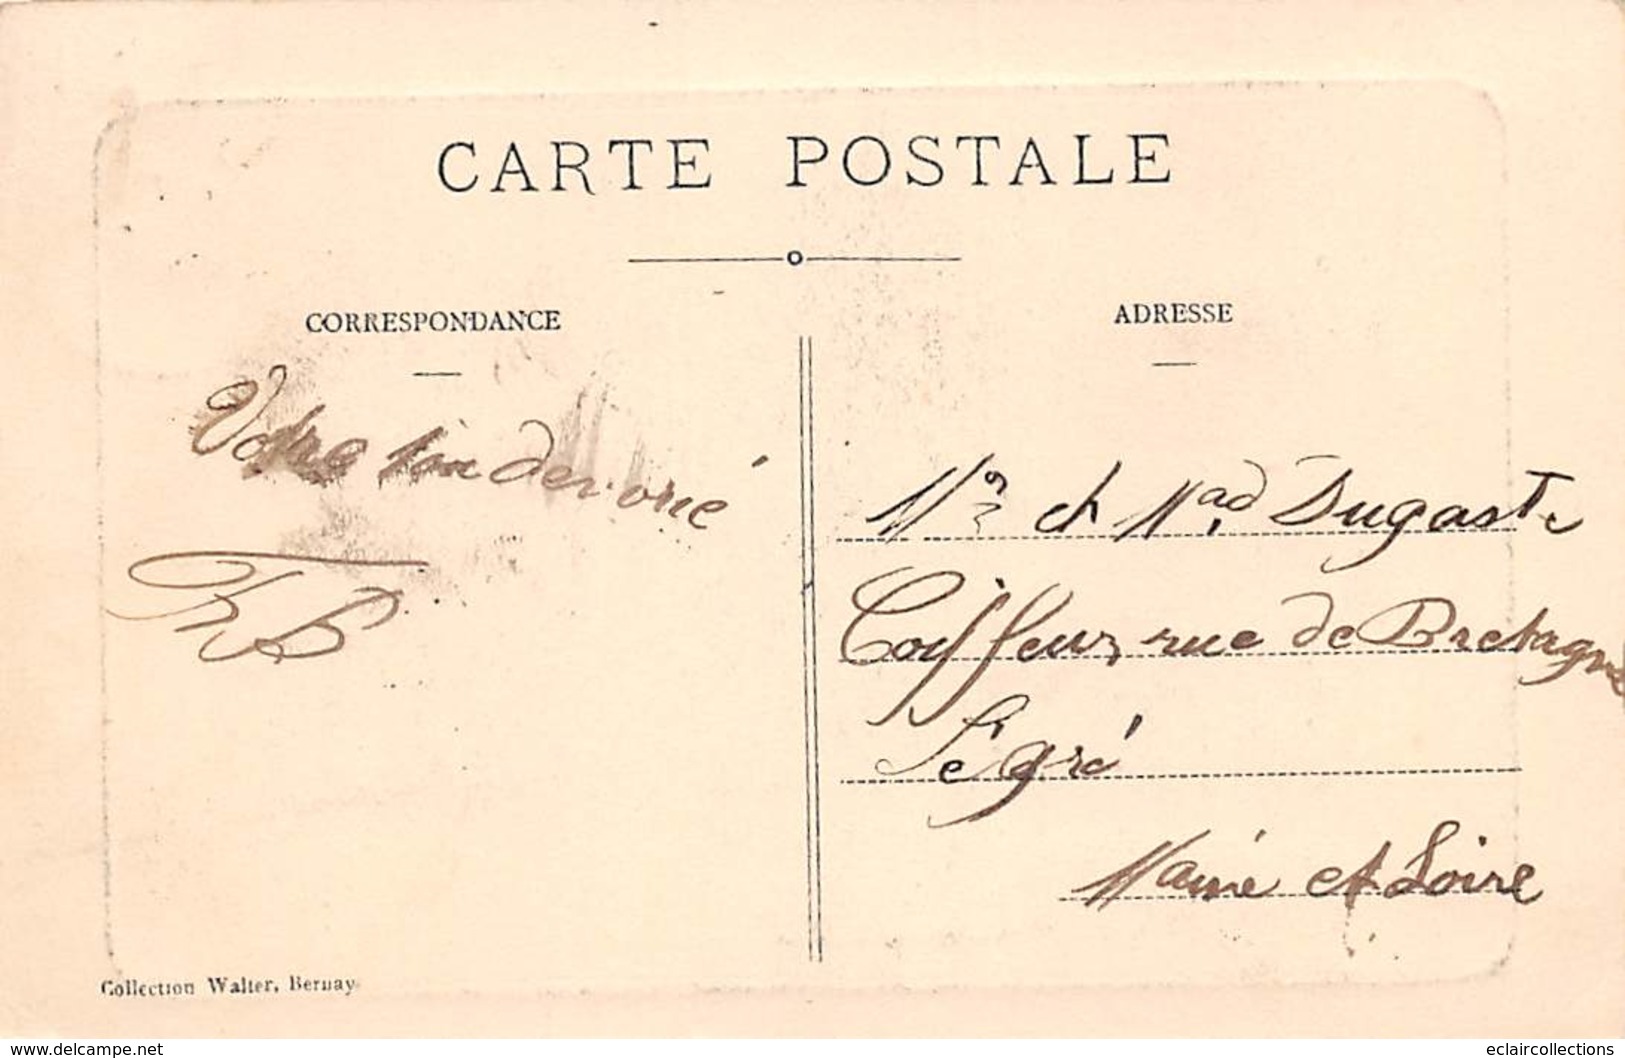 CARTE POSTALE
CORRESPONDANCE
ADRESSE
Votre
FB
Mr et Mad Dugast
Coiffeur, rue de Bretagne
Segré
Maine et Loire
Collection Walter, Bernay
www.delcampe.net
eclaircollections